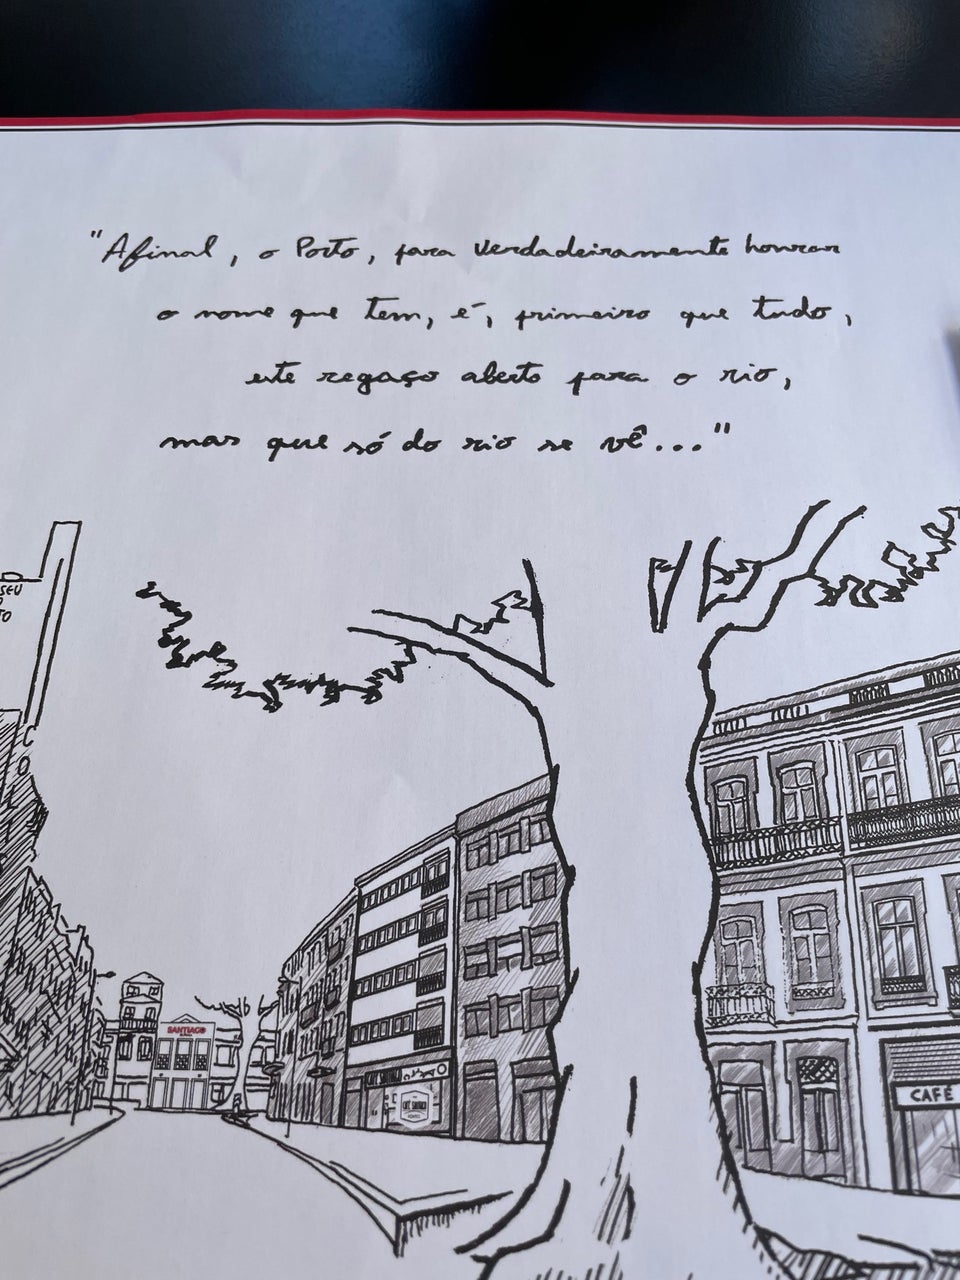 "Afinal, o Porto, para verdadeiramente honrar
o nome que tem, é, primeiro que tudo,
este regaço aberto para o rio,
mas que só do rio se vê..."
SEU
TO
SANTIAGO
CAFÉ SANTIAGO
CAFÉ